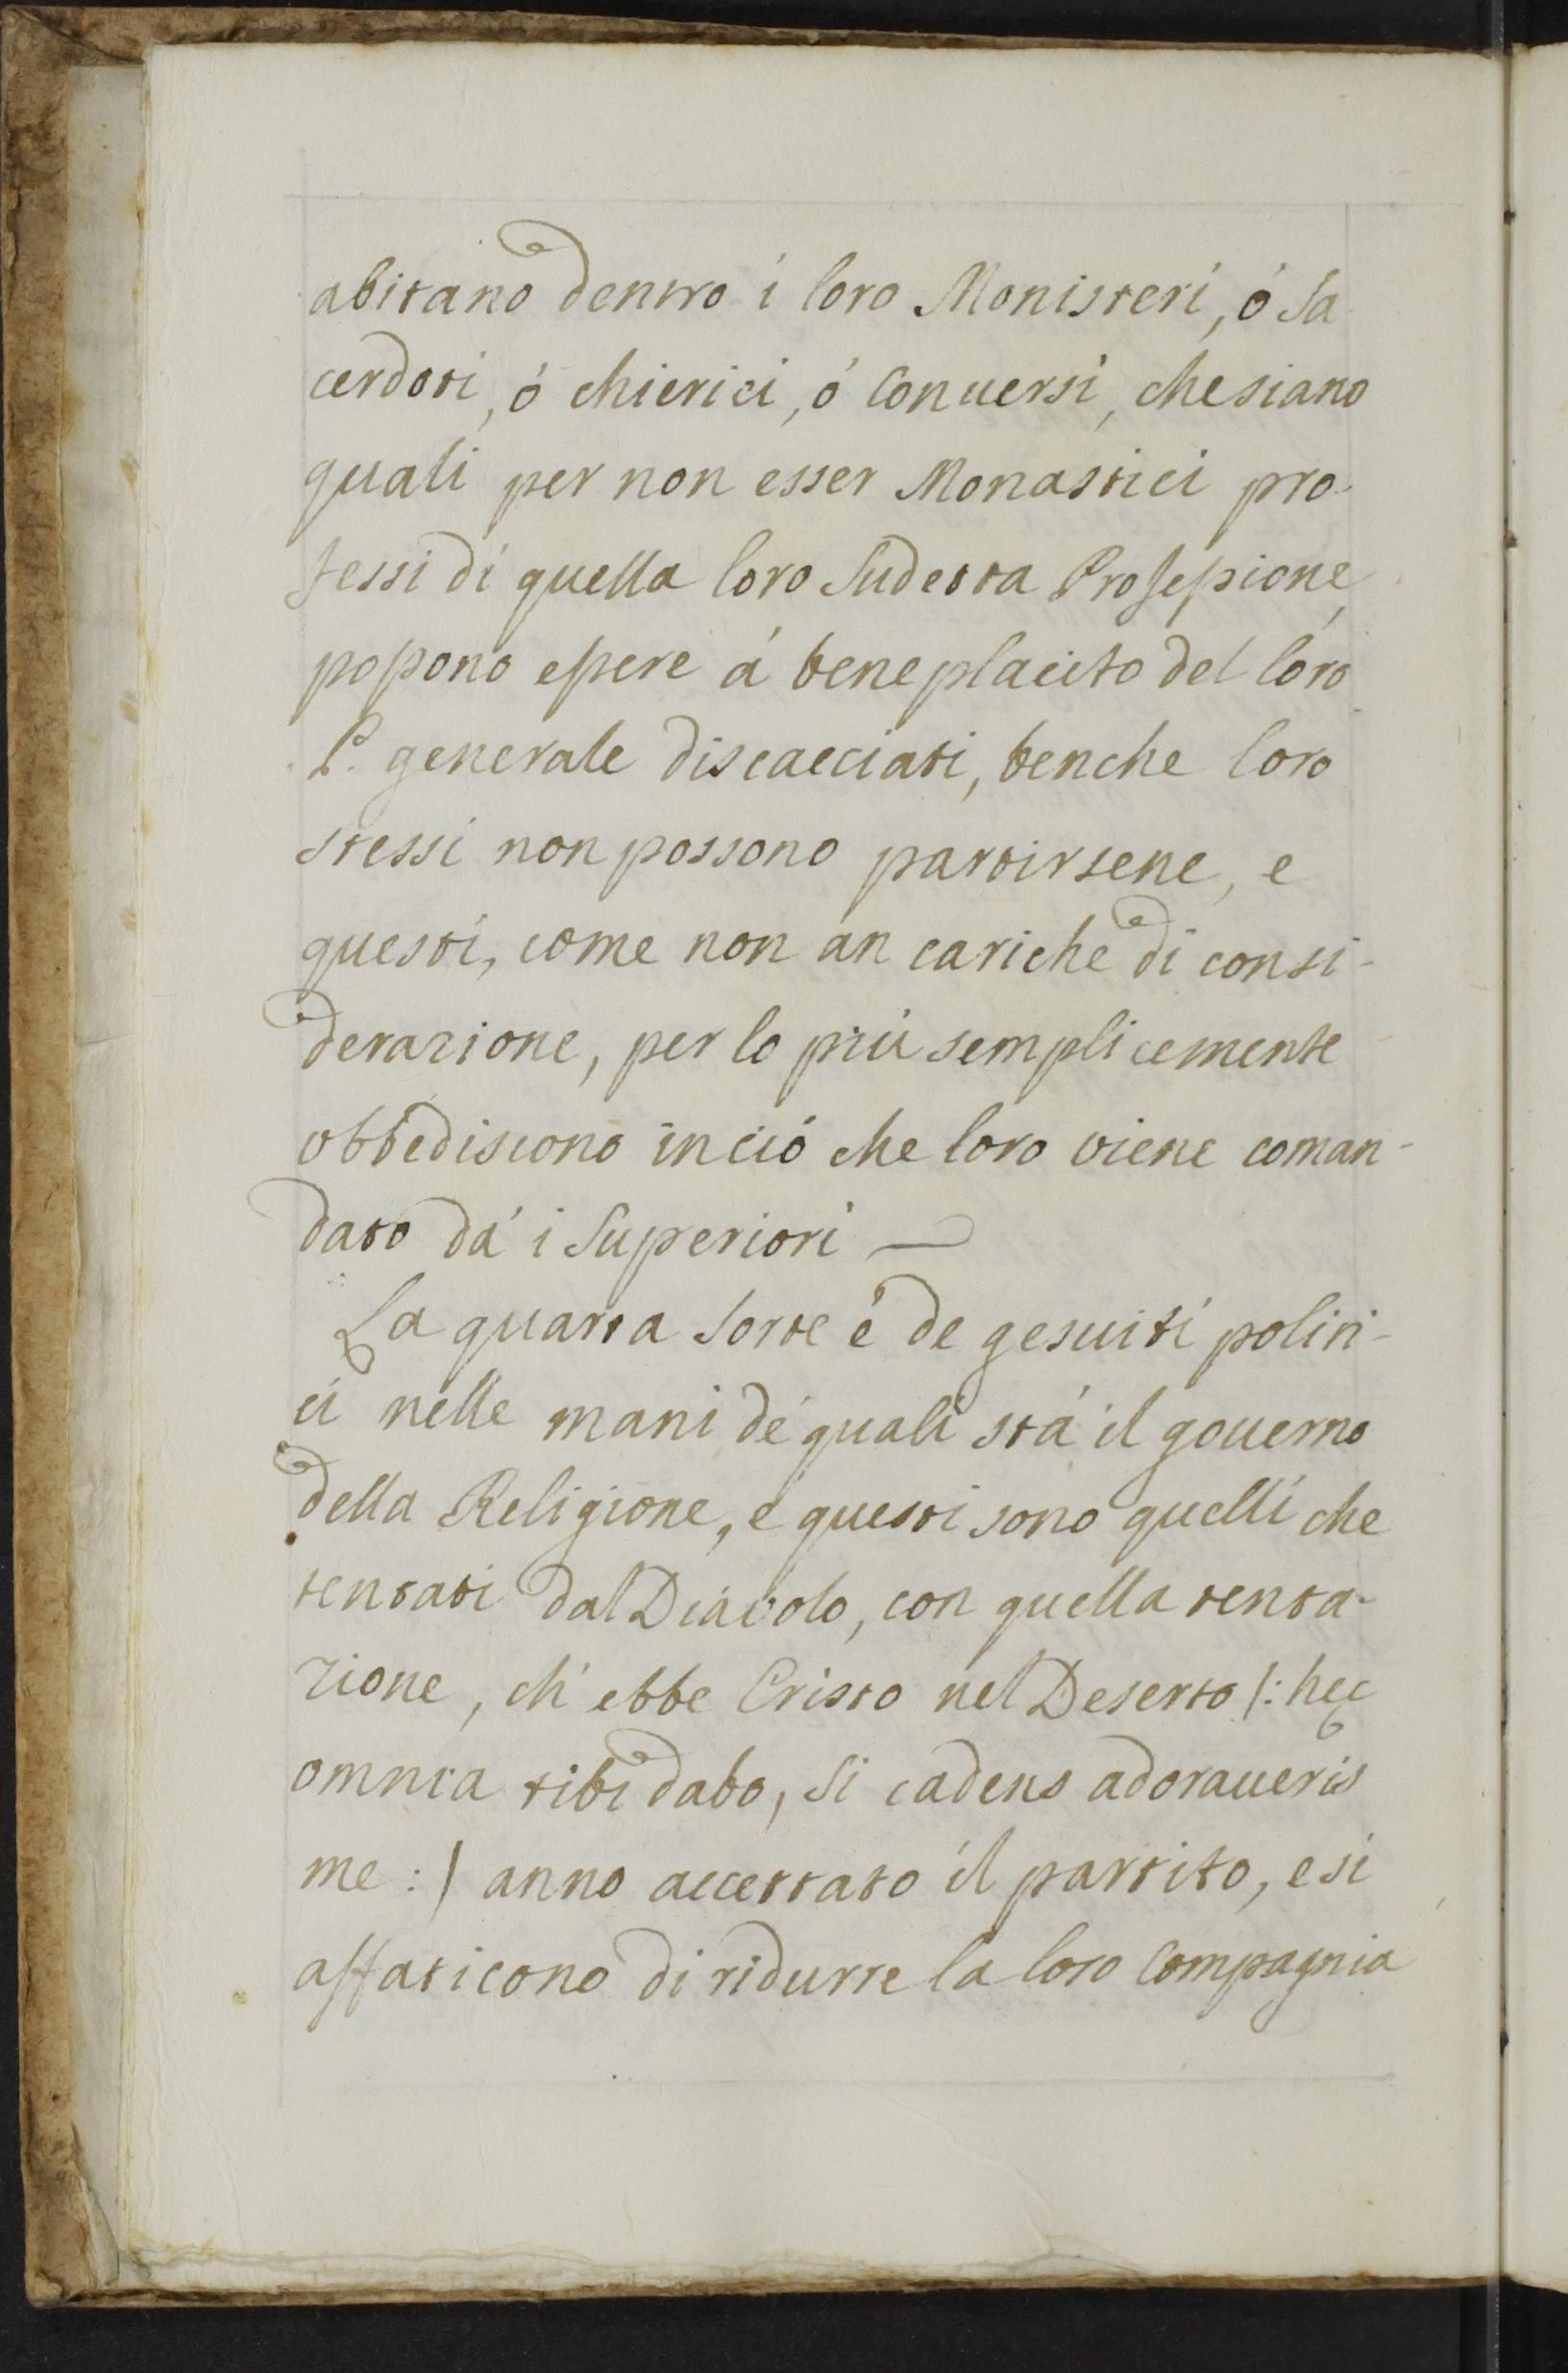 abitano dentro i loro Monisteri, ó Sa
cerdoti, ó chierici, ó Conuersi, che siano
quali per non esser Monastici pro-
fessi di quella loro Sudetta Professione,
possono essere á beneplacito del loro
P. generale discacciati, benche loro
stessi non possono partirsene, e
questi, come non an cariche di consi-
derazione, per lo piú semplicemente
obbediscono in ció che loro viene coman-
dato dá i Superiori —
La quarta Sorte é de gesuiti politi-
ci nelle mani dé quali stá il gouerno
della Religione, e questi sono quelli che
tentati dal Diavolo, con quella tenta-
zione, ch' ebbe Cristo nel Deserto /: hęc
omnia tibi dabo, Si cadens adoraueris
me :/ anno accettato il partito, e si
affaticono di ridurre la loro Compagnia